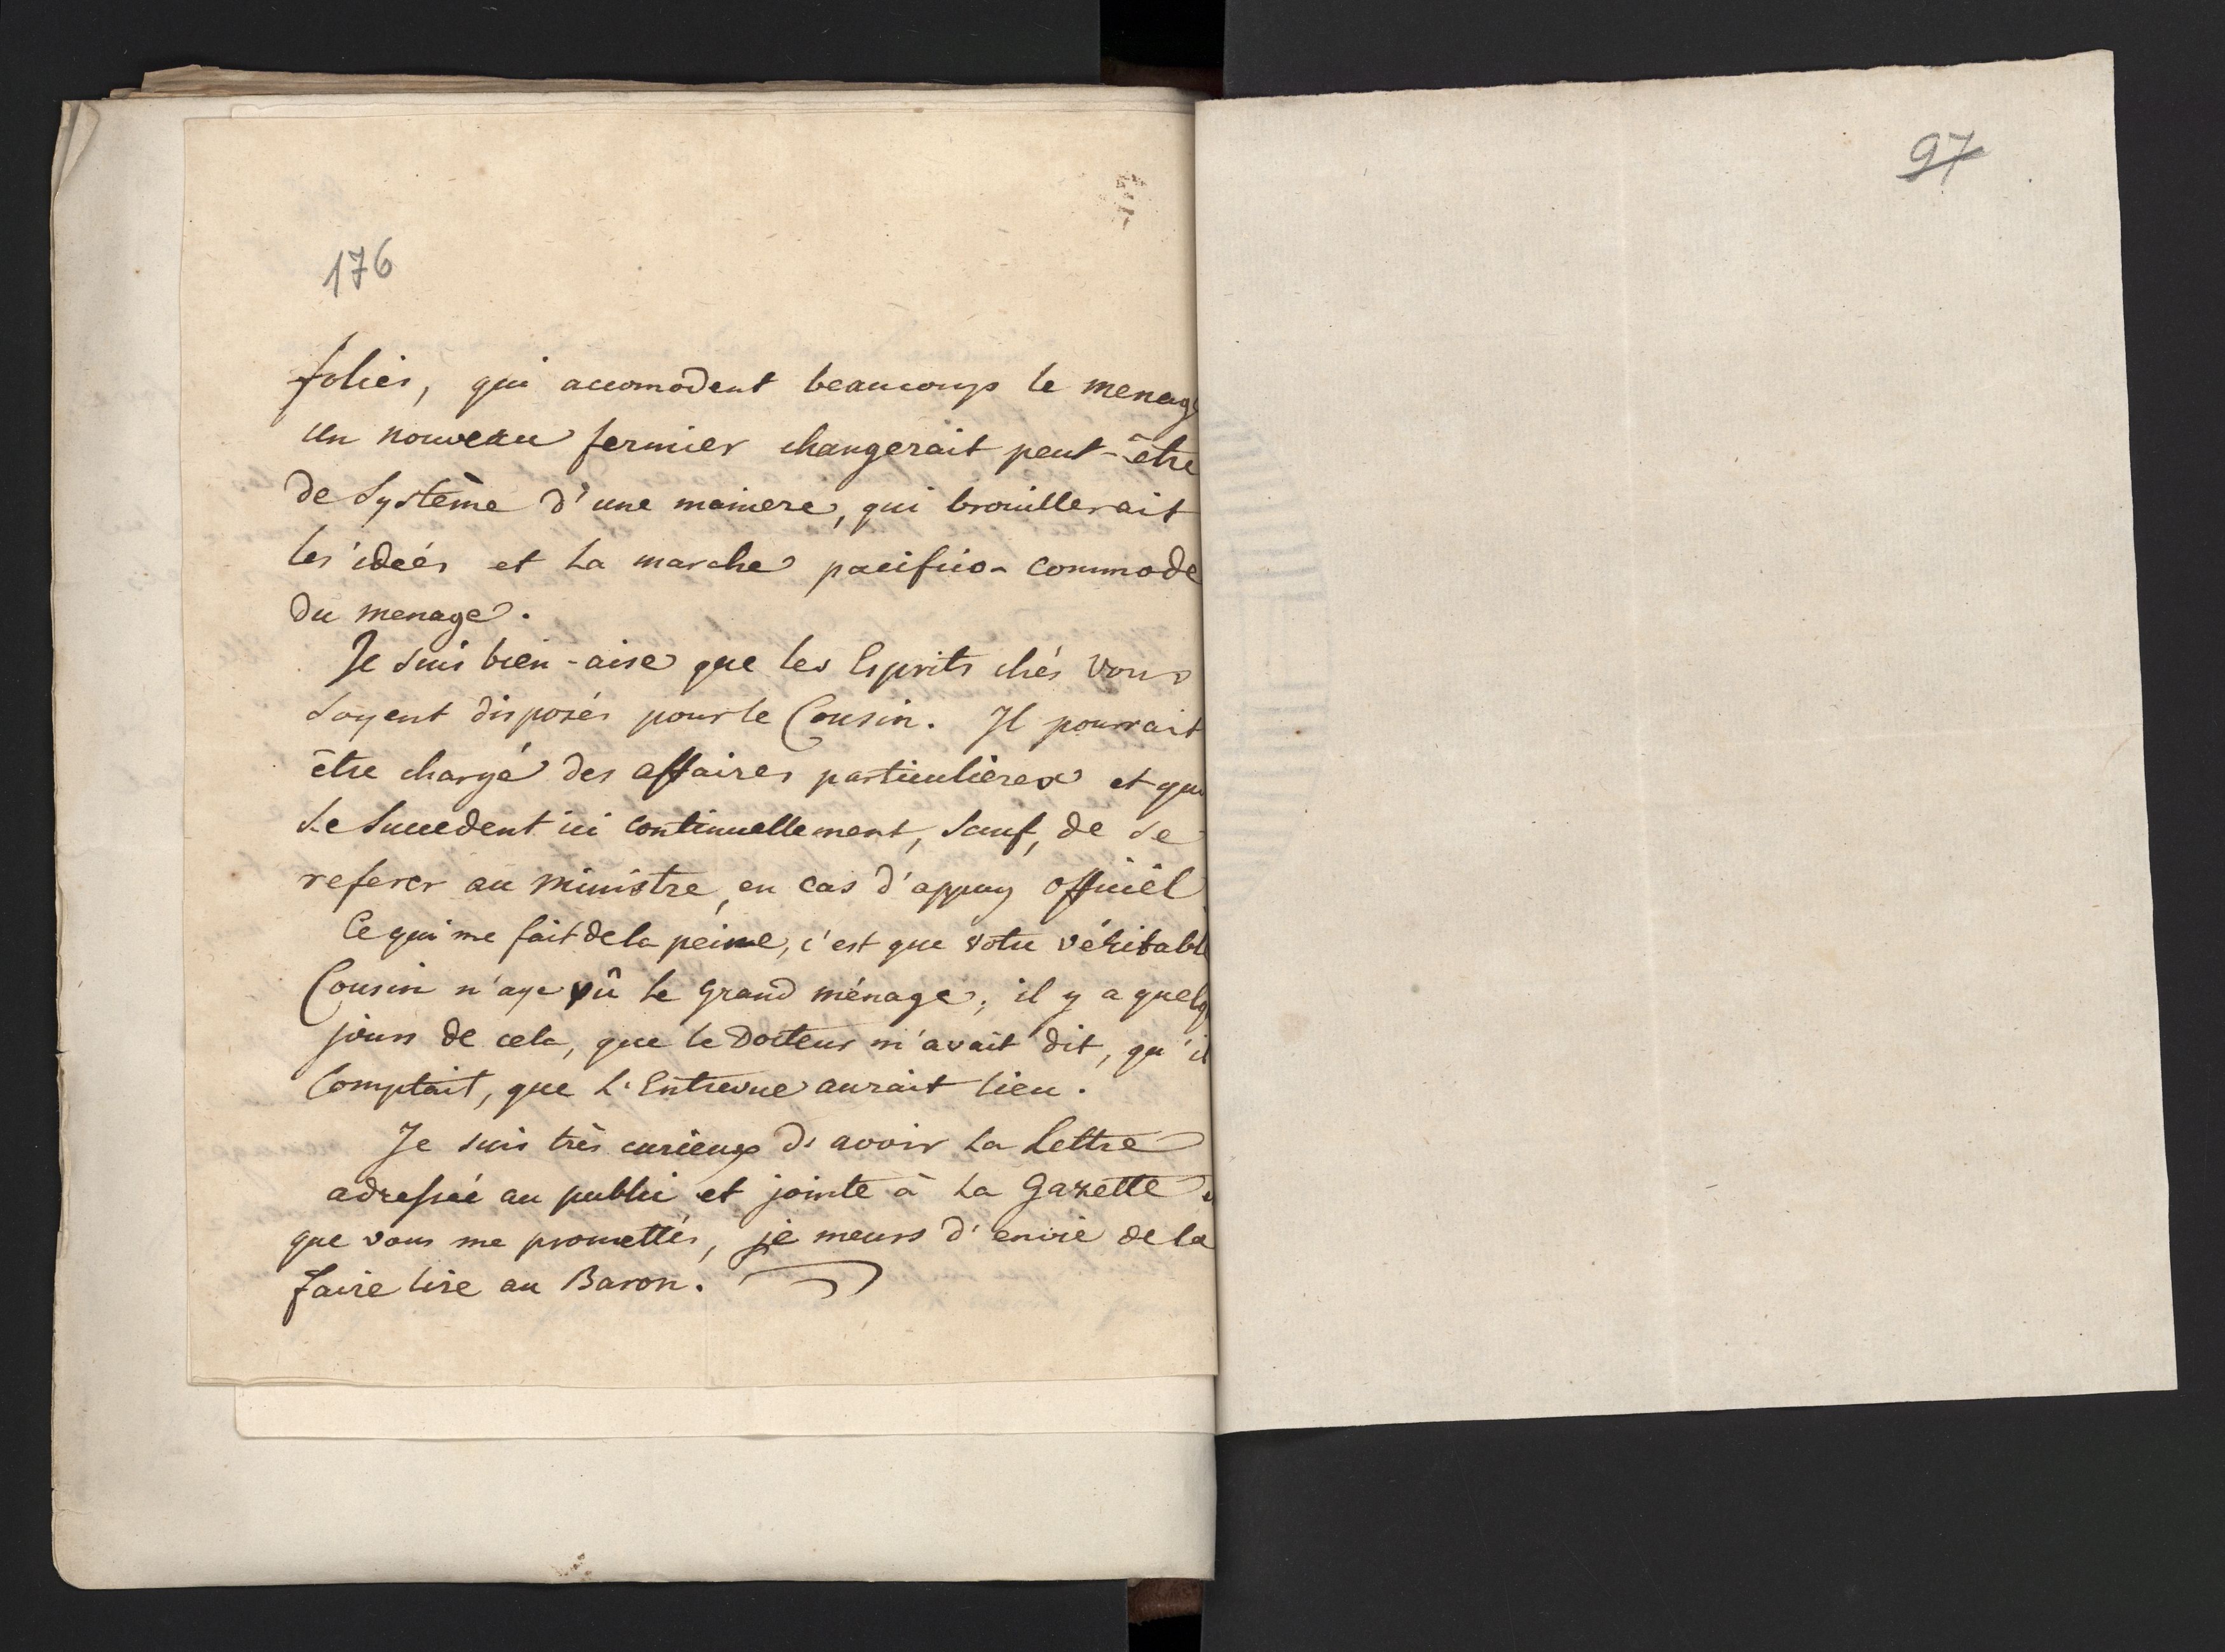 97
176
folies, qui accomodent beaucoup le menag
Un nouveau fermier changerait peut-être
de Système d'une maniere, qui brouillerait
les ideés et la marche pacifico-commode
du menage.
Je suis bien-aise que les Esprits chés vous
soyent disposés pour le Cousin. Il pourrait
être chargé des affaires particulières et qui
se succedent ici continuellement, sauf, de se
referer au Ministre, en cas d'appuy officiel
Ce qui me fait de la peine, c'est que votre véritabl
Cousin n'aye vû le grand ménage; il y a quelq
jours de cela, que le Docteur m'avait dit, qu'il
Comptait, que l'Entrevue aurait lieu.
Je suis très curieux d'avoir la Lettre
adressée au public et jointe à la Gazette
que vous me promettés, je meurs d'envie de la
faire lire au Baron.